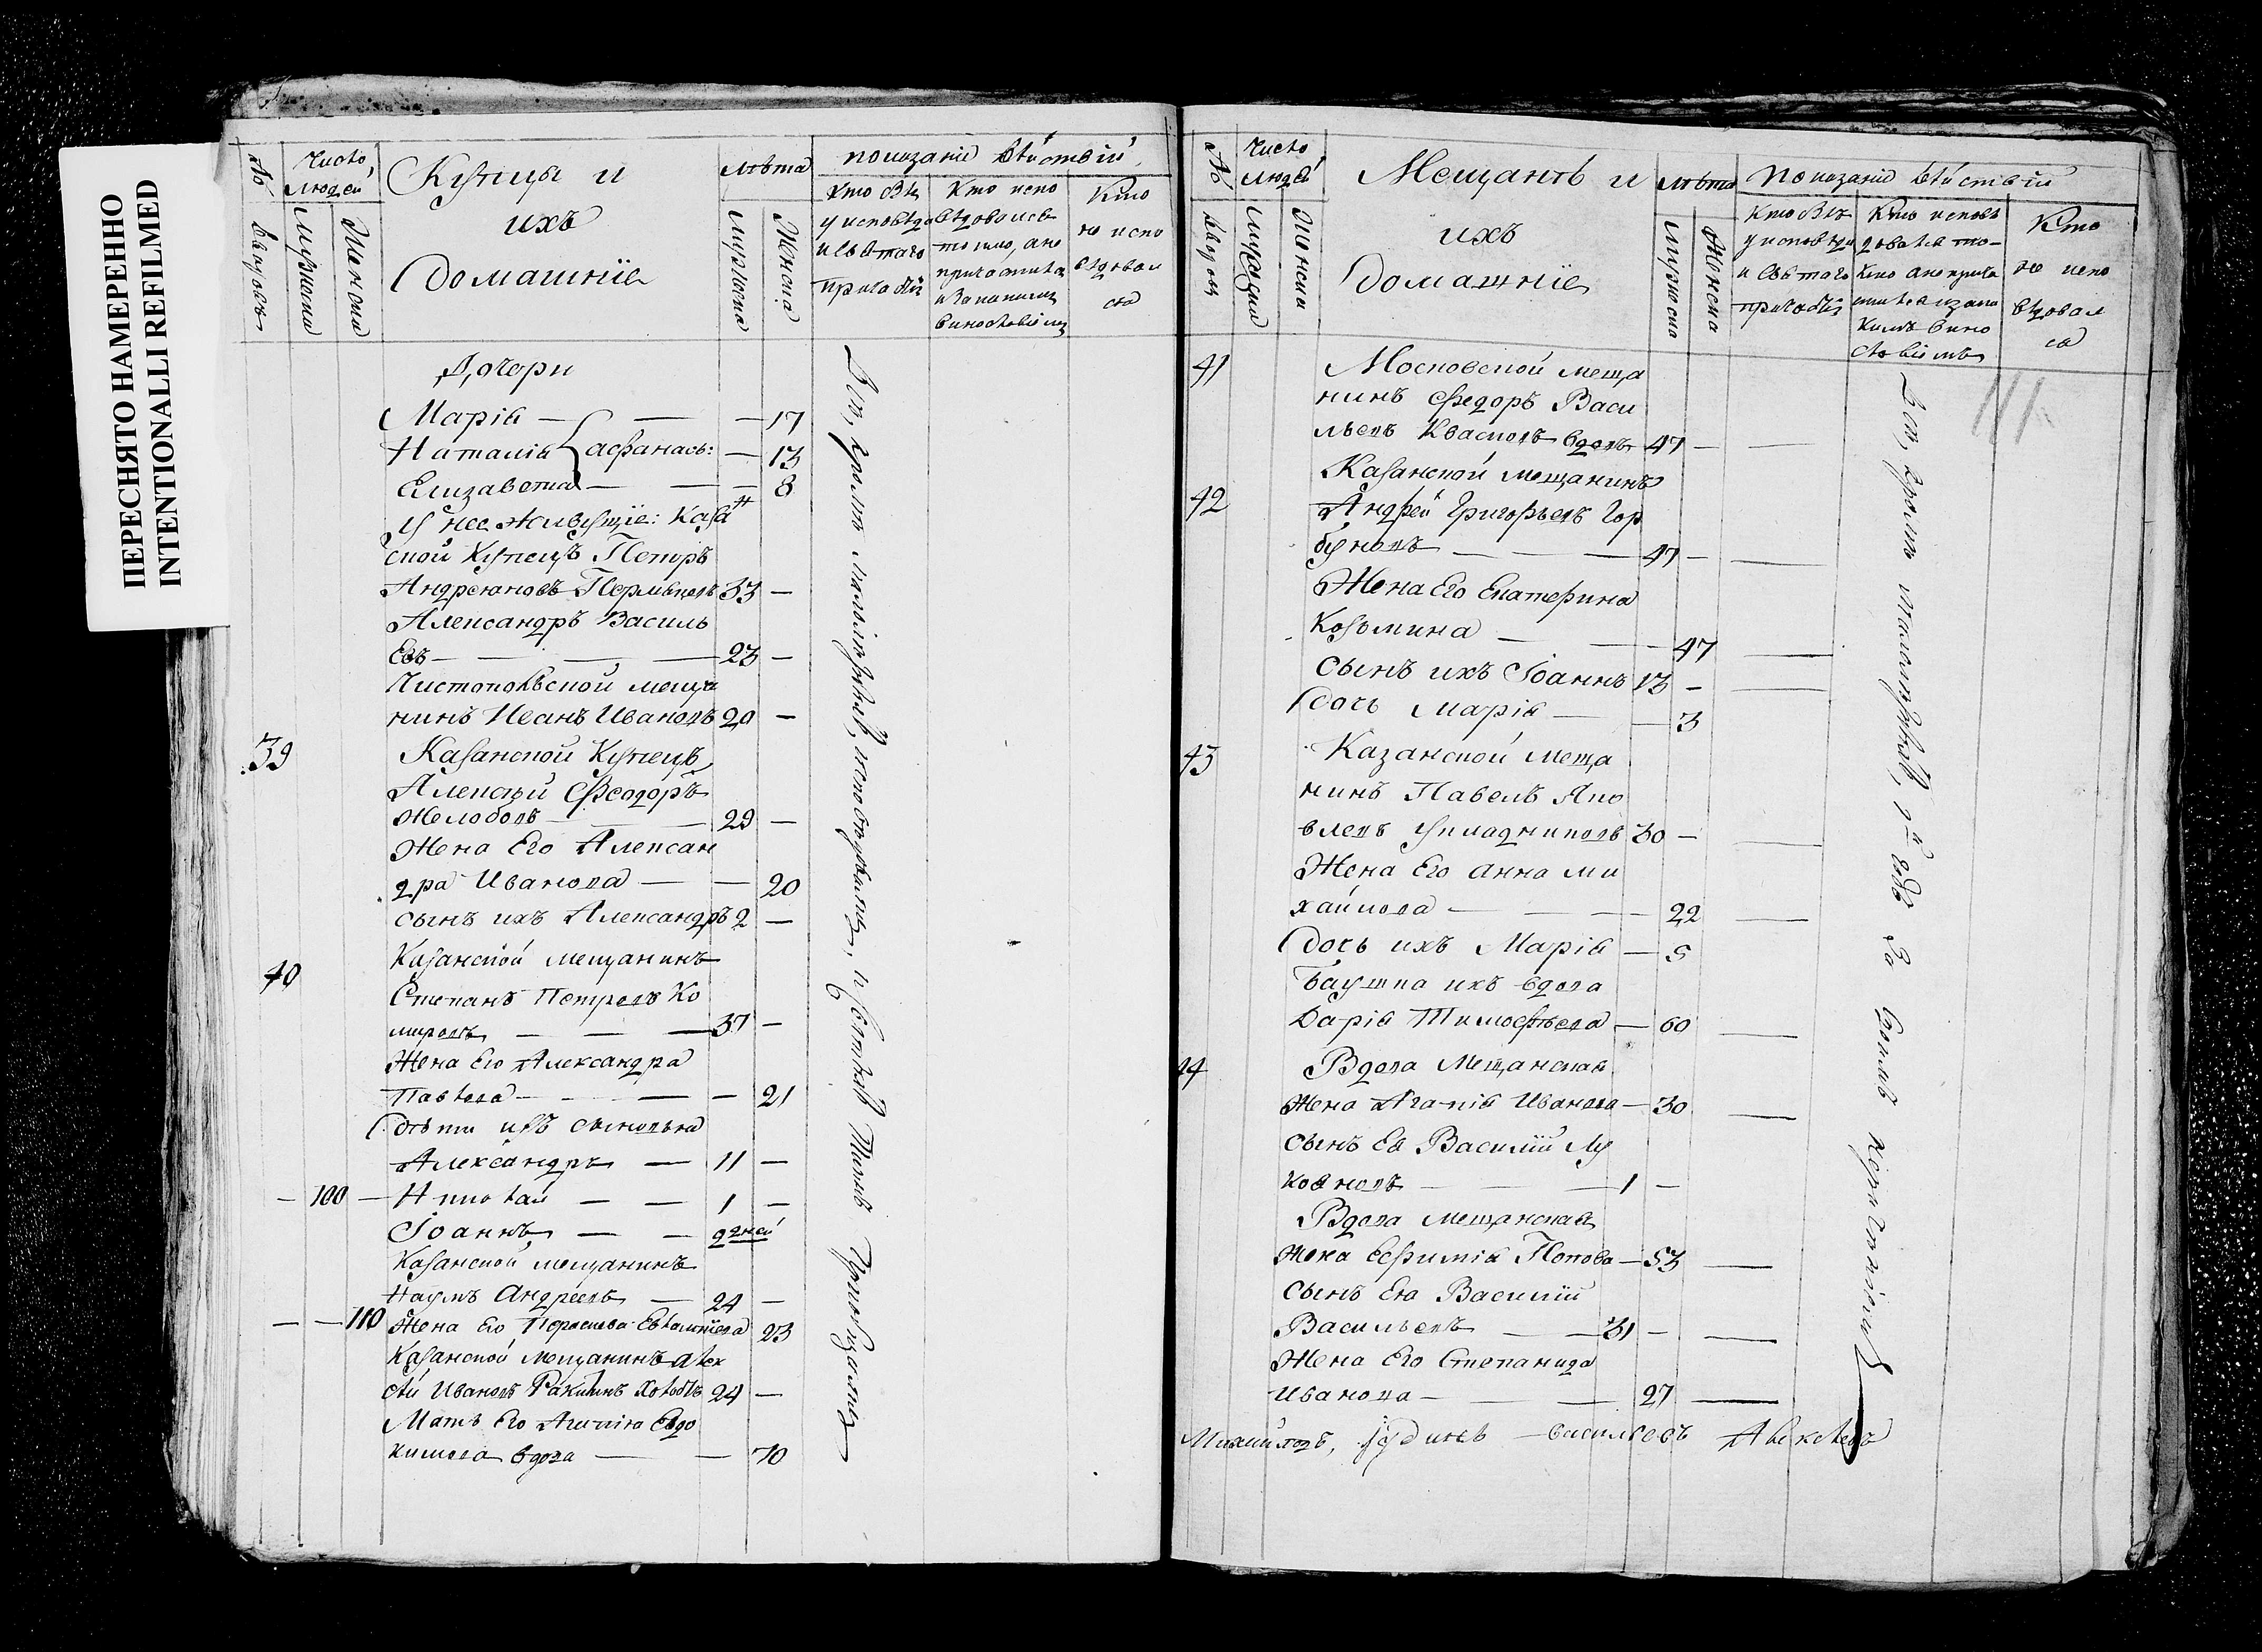 ПЕРЕСНЯТО НАМЕРЕННО
INTENTIONALLI REFILMED
№ дворовъ
Число людей
мужеска
Женска
Купцы и
ихъ
Домашнїе
лѣта
мужеска
Женска
показанiе дѣйствiй
Кто былъ
у исповѣди
и святаго
причастiя
Кто испо
вѣдовался
токмо, а не
причастился
и за какимъ
винословiемъ
Кто
не испо
вѣдовал
ся
Дочери
Марiя — — — 17
Наталiя афанась: — 13
Елизавета — — — 8
У нее живущїе: Каза
ской Купецъ Петръ
Андреяновъ Пермяковъ 33 —
Александръ Василь
Евъ — — — 23 —
Чистопольской меща
нинъ Иванъ Ивановъ 20 —
39 Казанской Купецъ
Алексѣй Феодоръ
Желобовъ — — 29 —
Жена Его Алексан
дра Иванова — — 20
сынъ ихъ Александръ 2 —
40 Казанской мещанинъ
Степанъ Петровъ Ко
маровъ — — — 37 —
Жена Его Александра
Павлова — — — 21
Дѣти ихъ сыновья
Александръ — 11 —
— 100 — Николай — — 1 —
Iоаннъ — — 9 дней
Казанской мещанинъ
Наумъ Андреевъ — 24 —
— — 110 Жена Его Параскева 23
Казанской мещанинъ Алек
сѣй Ивановъ Ракитинъ Холостъ 24 —
Мать Его Агапiя Евдо
кимова вдова — — 70
Всѣ, кромѣ малолѣтныхъ, исповѣдались, и Святыхъ Таинъ Прiобщались
№ дворовъ
Число людей
мужеска
Женска
Мещанѣ и
ихъ
Домашнїе
лѣта
Мужеска
Женска
показанiе дѣйствiй
Кто былъ
у исповѣди
и святаго
причастiя
Кто исповѣ
довался то-
кмо а не прича
стился и за ка
кимъ вино
словiемъ
Кто
не испо
вѣдовал
ся
111
41 Московской меща
нинъ Федоръ Васи
льевъ Квасковъ вдовъ 47 — —
Казанской мещанинъ
42 Андрей Григорьевъ Гор
буновъ — — — 47 — —
Жена Его Екатерина
Козьмина — — — 47 —
Сынъ ихъ Iоаннъ 13 — —
Дочь Марiя — — 3
43 Казанской меща
нинъ Павелъ Яко
влевъ Укладниковъ 30 — —
Жена Его Анна Ми
хайлова — — — 22 —
Дочь ихъ Марiя — 5
Баушка ихъ вдова
Дарiя Тимофѣева — 60 —
44 Вдова Мещанская
Жена Агапiя Иванова — 30 —
Сынъ Ея Василiй Лу
кояновъ — — — 1 —
Вдова мещанская
Жена Евфимiя Попова — 53 —
Сынъ Ея Василiй
Васильевъ — — 31 — —
Жена Его Степанида
Иванова — — — 27 —
Всѣ, кромѣ малолѣтныхъ
Михайловъ, васильевъ Алексѣевъ